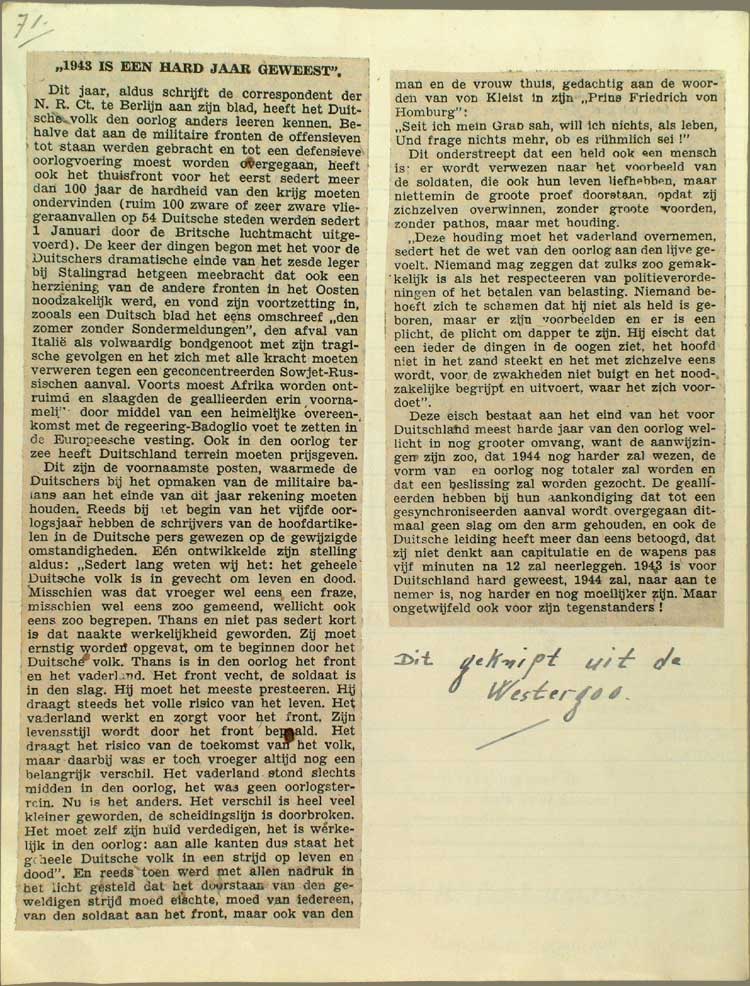 71.
„1943 IS EEN HARD JAAR GEWEEST".
Dit jaar, aldus schrijft de correspondent der
N. R. Ct. te Berlijn aan zijn blad, heeft het Duit-
sche volk den oorlog anders leeren kennen. Be-
halve dat aan de militaire fronten de offensieven
tot staan werden gebracht en tot een defensieve
oorlogvoering moest worden overgegaan, heeft
ook het thuisfront voor het eerst sedert meer
dan 100 jaar de hardheid van den krijg moeten
ondervinden (ruim 100 zware of zeer zware vlie-
geraanvallen op 54 Duitsche steden werden sedert
1 Januari door de Britsche luchtmacht uitge-
voerd). De keer der dingen begon met het voor de
Duitschers dramatische einde van het zesde leger
bij Stalingrad hetgeen meebracht dat ook een
herziening van de andere fronten in het Oosten
noodzakelijk werd, en vond zijn voortzetting in,
zooals een Duitsch blad het eens omschreef „den
zomer zonder Sondermeldungen", den afval van
Italië als volwaardig bondgenoot met zijn tragi-
sche gevolgen en het zich met alle kracht moeten
verweren tegen een geconcentreerden Sowjet-Rus-
sischen aanval. Voorts moest Afrika worden ont-
ruimd en slaagden de geallieerden erin voorna-
melijk door middel van een heimelijke overeen-
komst met de regeering-Badoglio voet te zetten in
de Europeesche vesting. Ook in den oorlog ter
zee heeft Duitschland terrein moeten prijsgeven.
Dit zijn de voornaamste posten, waarmede de
Duitschers bij het opmaken van de militaire ba-
lans aan het einde van dit jaar rekening moeten
houden. Reeds bij het begin van het vijfde oor-
logsjaar hebben de schrijvers van de hoofdartike-
len in de Duitsche pers gewezen op de gewijzigde
omstandigheden. Eén ontwikkelde zijn stelling
aldus: „Sedert lang weten wij het: het geheele
Duitsche volk is in gevecht om leven en dood.
Misschien was dat vroeger wel eens een fraze,
misschien wel eens zoo gemeend, wellicht ook
eens zoo begrepen. Thans en niet pas sedert kort
is dat naakte werkelijkheid geworden. Zij moet
ernstig worden opgevat, om te beginnen door het
Duitsche volk. Thans is in den oorlog het front
en het vaderland. Het front vecht, de soldaat is
in den slag. Hij moet het meeste presteeren. Hij
draagt steeds het volle risico van het leven. Het
vaderland werkt en zorgt voor het front. Zijn
levensstijl wordt door het front bepaald. Het
draagt het risico van de toekomst van het volk,
maar daarbij was er toch vroeger altijd nog een
belangrijk verschil. Het vaderland stond slechts
midden in den oorlog, het was geen oorlogster-
rein. Nu is het anders. Het verschil is heel veel
kleiner geworden, de scheidingslijn is doorbroken.
Het moet zelf zijn huid verdedigen, het is werke-
lijk in den oorlog: aan alle kanten dus staat het
geheele Duitsche volk in een strijd op leven en
dood". En reeds toen werd met allen nadruk in
het licht gesteld dat het doorstaan van den ge-
weldigen strijd moed eischte, moed van iedereen,
van den soldaat aan het front, maar ook van den
man en de vrouw thuis, gedachtig aan de woor-
den van von Kleist in zijn „Prins Friedrich von
Homburg":
„Seit ich mein Grab sah, will ich nichts, als leben,
Und frage nichts mehr, ob es rühmlich sei !"
Dit onderstreept dat een held ook een mensch
is; er wordt verwezen naar het voorbeeld van
de soldaten, die ook hun leven liefhebben, maar
niettemin de groote proef doorstaan, opdat zij
zichzelven overwinnen, zonder groote woorden,
zonder pathos, maar met houding.
„Deze houding moet het vaderland overnemen,
sedert het de wet van den oorlog aan den lijve ge-
voelt. Niemand mag zeggen dat zulks zoo gemak-
kelijk is als het respecteeren van politieverorde-
ningen of het betalen van belasting. Niemand be-
hoeft zich te schamen dat hij niet als held is ge-
boren, maar er zijn voorbeelden en er is een
plicht, de plicht om dapper te zijn. Hij eischt dat
een ieder de dingen in de oogen ziet, het hoofd
niet in het zand steekt en het met zichzelve eens
wordt, voor de zwakheden niet buigt en het nood-
zakelijke begrijpt en uitvoert, waar het zich voor-
doet".
Deze eisch bestaat aan het eind van het voor
Duitschland meest harde jaar van den oorlog wel-
licht in nog grooter omvang, want de aanwijzin-
gen zijn zoo, dat 1944 nog harder zal wezen, de
vorm van en oorlog nog totaler zal worden en
dat een beslissing zal worden gezocht. De gealli-
eerden hebben bij hun aankondiging dat tot een
gesynchroniseerden aanval wordt overgegaan dit-
maal geen slag om den arm gehouden, en ook de
Duitsche leiding heeft meer dan eens betoogd, dat
zij niet denkt aan capitulatie en de wapens pas
vijf minuten na 12 zal neerleggen. 1943 is voor
Duitschland hard geweest, 1944 zal, naar aan te
nemen is, nog harder en nog moeilijker zijn. Maar
ongetwijfeld ook voor zijn tegenstanders !
Dit geknipt uit de
Westergoo.